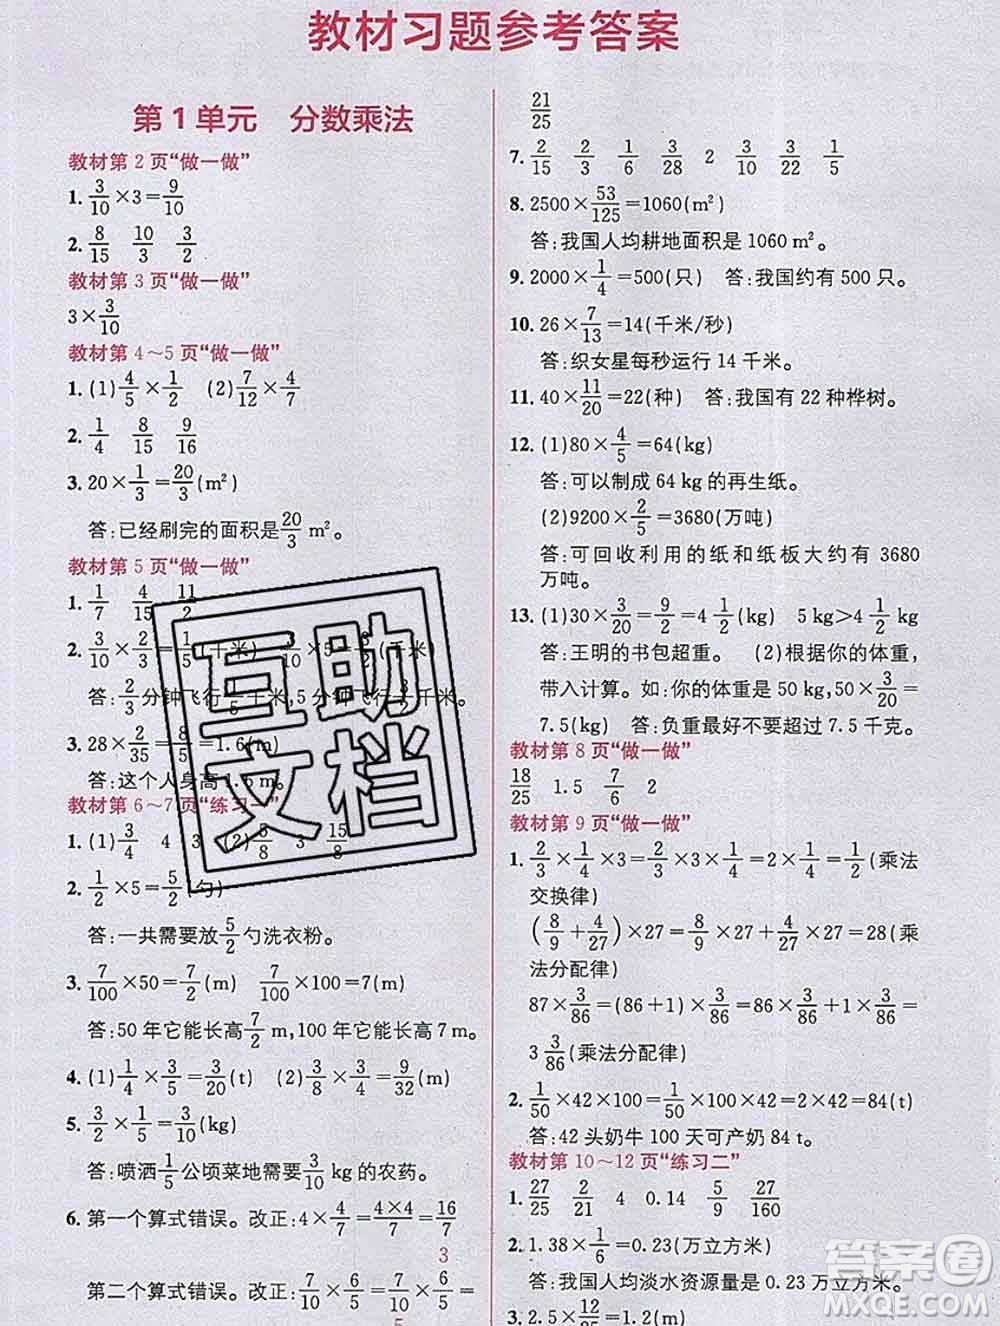 教材习题参考答案
第1单元 分数乘法
教材第2页“做一做”
1. 3/10×3=9/10
2. 8/15 10/3 3/2
教材第3页“做一做”
3×3/10
教材第4~5页“做一做”
1. (1)4/5×1/2 (2)7/12×4/7
2. 1/4 8/15 9/16
3. 20×1/3=20/3(m²)
答:已经刷完的面积是20/3 m²。
教材第5页“做一做”
1. 1/7 4/15 11/2
2. 3/10×2/3=1/5(千米) 3/10×5=(千米)
答:2/3分钟飞行1/5千米,5分钟飞行千米。
3. 28×2/35=8/5=1.6(m)
答:这个人身高1.6 m。
教材第6~7页“练习一”
1. (1)3/4 4 3 (2)/8 3 15/8
2. 1/2×5=5/2(勺)
答:一共需要放5/2勺洗衣粉。
3. 7/100×50=7/2(m) 7/100×100=7(m)
答:50年它能长高7/2 m,100年它能长高7 m。
4. (1)1/4×3/5=3/20(t) (2)3/8×3/4=9/32(m)
5. 3/2×1/5=3/10(kg)
答:喷洒1/5公顷菜地需要3/10 kg的农药。
6. 第一个算式错误。改正:4×4/7=4×4/7=16/7
3
第二个算式错误。改正:3/10×6=3×6/10=
5
21/25
7. 2/15 2/3 1/6 3/28 2 3/10 3/22 1/5
8. 2500×53/125=1060(m²)
答:我国人均耕地面积是1060 m²。
9. 2000×1/4=500(只) 答:我国约有500只。
10. 26×7/13=14(千米/秒)
答:织女星每秒运行14千米。
11. 40×11/20=22(种) 答:我国有22种桦树。
12. (1)80×4/5=64(kg)
答:可以制成64 kg的再生纸。
(2)9200×2/5=3680(万吨)
答:可回收利用的纸和纸板大约有3680
万吨。
13. (1)30×3/20=9/2=4 1/2(kg) 5kg>4 1/2 kg
答:王明的书包超重。 (2)根据你的体重,
带入计算。如:你的体重是50 kg,50×3/20=
7.5(kg) 答:负重最好不要超过7.5千克。
教材第8页“做一做”
18/25 1.5 7/6 2
教材第9页“做一做”
1. 2/3×1/4×3=2/3×3×1/4=2×1/4=1/2(乘法
交换律)
(8/9+4/27)×27=8/9×27+4/27×27=28(乘
法分配律)
87×3/86=(86+1)×3/86=86×3/86+1×3/86=
3 3/86(乘法分配律)
2. 1/50×42×100=1/50×100×42=2×42=84(t)
答:42头奶牛100天可产奶84 t。
教材第10~12页“练习二”
1. 27/25 2/21 4 0.14 5/9 27/160
2. 1.38×1/6=0.23(万立方米)
答:我国人均淡水资源量是0.23万立方米。
3. 2.5×12/25=1.2(米)
互助
文档
答案圈
MXQE.COM